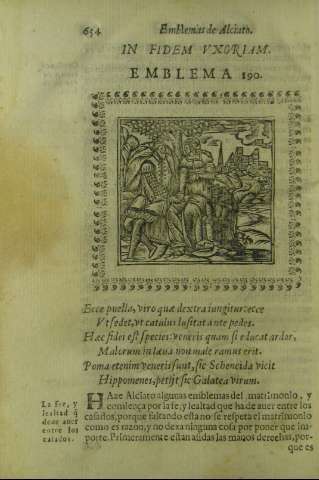 654 Emblemas de Alciato.
IN FIDEM VXORIAM.
EMBLEMA 190.
Ecce puella, viro quæ dextra iungitur: ecce
Vt sedet, vt catulus lusitat ante pedes.
Hæc fidei est species: veneris quam si educat ardor,
Malorum in laeua non male ramus erit.
Poma etenim veneris sunt, sic Scheneida vicit
Hippomenes, petijt sic Galatea virum.
La Fe, y
lealtad q̃
deue auer
entre los
casados.
HAze Alciato algunas emblemas del matrimonio, y
comiença por la fe, y lealtad que ha de auer entre los
casados, porque faltando esta no se respeta el matrimonio
como es razon, y no dexa ninguna cosa por poner que im-
porte. Primeramente estan asidas las manos derechas, por-
que es